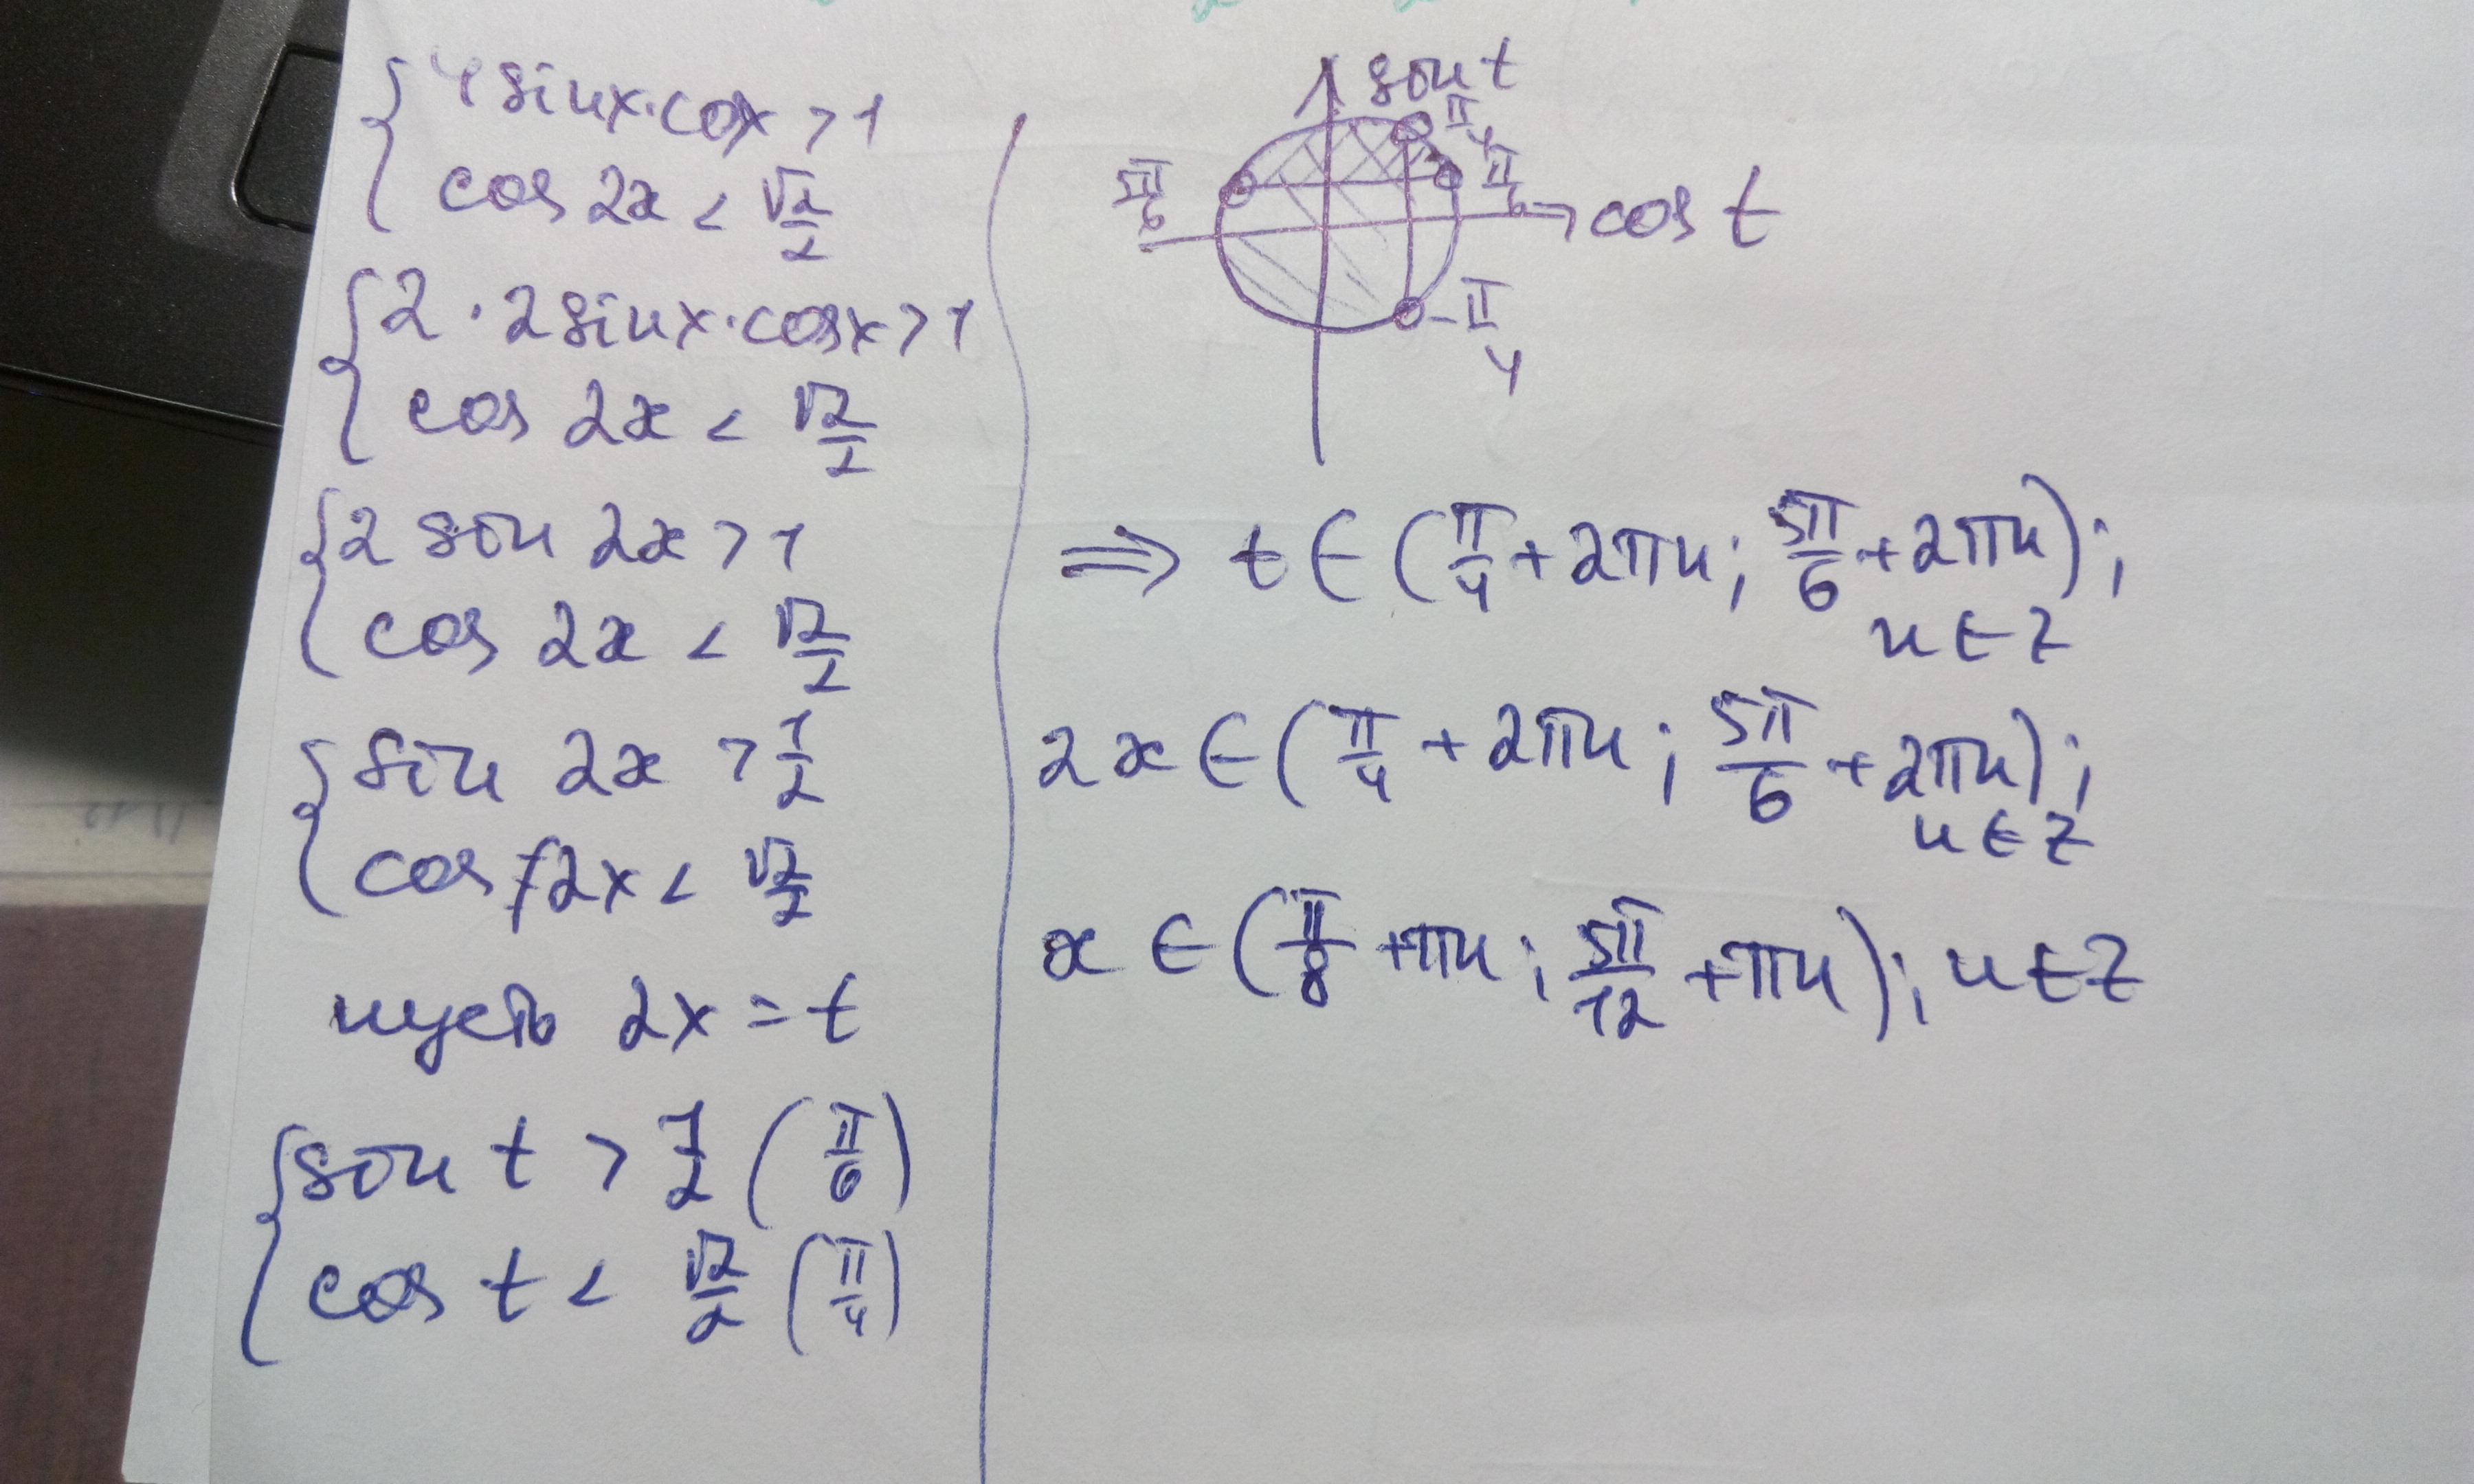 { 4 sinx·cosx > 1
cos 2x < √2/2
{ 2 · 2 sinx·cosx > 1
cos 2x < √2/2
{ 2 sin 2x > 1
cos 2x < √2/2
{ sin 2x > 1/2
cos 2x < √2/2
пусть 2x = t
{ sin t > 1/2 (π/6)
cos t < √2/2 (π/4)
sin t
π/4
5π/6
π/6
cos t
-π/4
⇒ t ∈ (π/4 + 2πn; 5π/6 + 2πn);
n ∈ Z
2x ∈ (π/4 + 2πn; 5π/6 + 2πn);
n ∈ Z
x ∈ (π/8 + πn; 5π/12 + πn); n ∈ Z